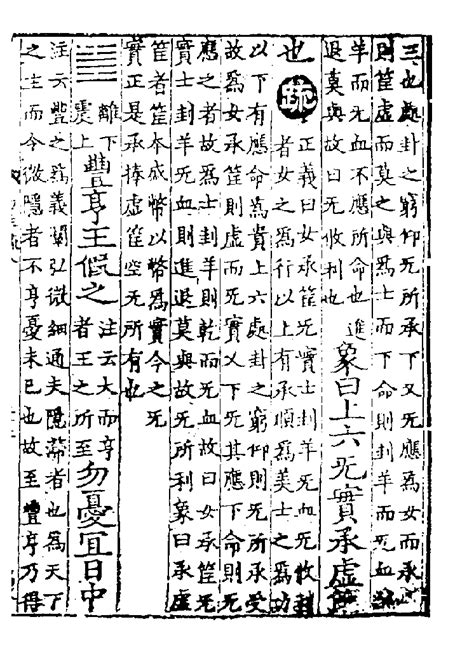 三也處卦之窮仰无所承下又无應爲女而承
則筐虛而莫之與爲士而下命則刲羊而无血刲
羊而无血不應所命也進
退莫與故曰无攸利也
象曰上六无實承虛筐
也疏
正義曰女承筐无實士刲羊无血无攸刲
者女之爲行以上有承順爲美士之爲功
以下有應命爲貴上六處卦之窮仰則无所承受
故爲女承筐則虛而无實又下无其應下命則无
應之者故爲士刲羊則乾而无血故曰女承筐无
實士刲羊无血則進退莫與故无所利象曰承虛
筐者筐本盛幣以幣爲實今之无
實正是承捧虛筐空无所有也
離下
震上
豐亨王假之
注云大而亨
者王之所至
勿憂宜日中
注云豐之爲義闡弘微細通夫隱滯者也爲天下
之主而令微隱者不亨憂未已也故至豐亨乃得